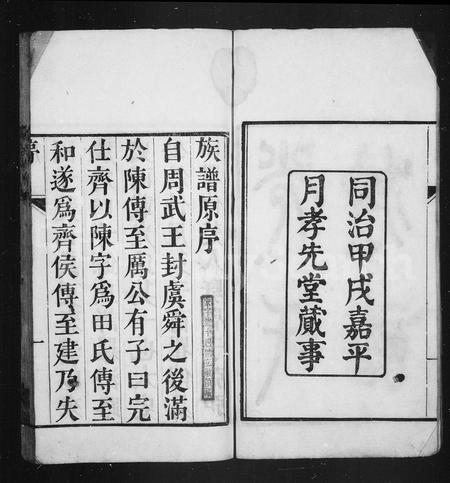 同治甲戌嘉平
月孝先堂蕆事
族譜原序
自周武王封虞舜之後滿
於陳傳至厲公有子曰完
仕齊以陳字為田氏傳至
和遂為齊侯傳至建乃失